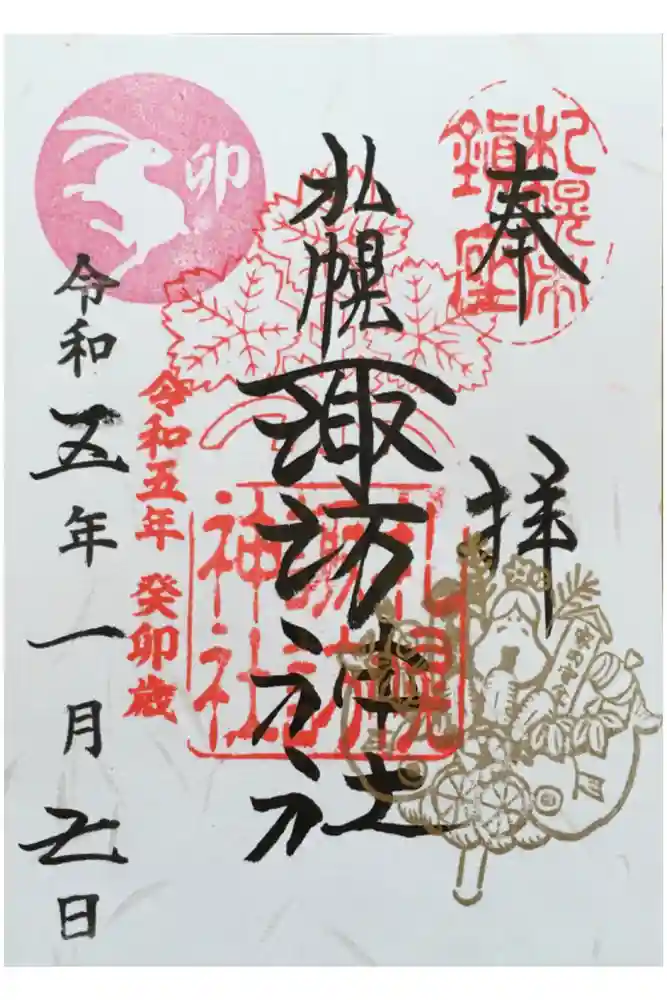 奉拝
札幌市
鎮座
札幌諏訪神社
札幌
諏訪
神社
令和五年 癸卯歳
卯
令和五年一月 日